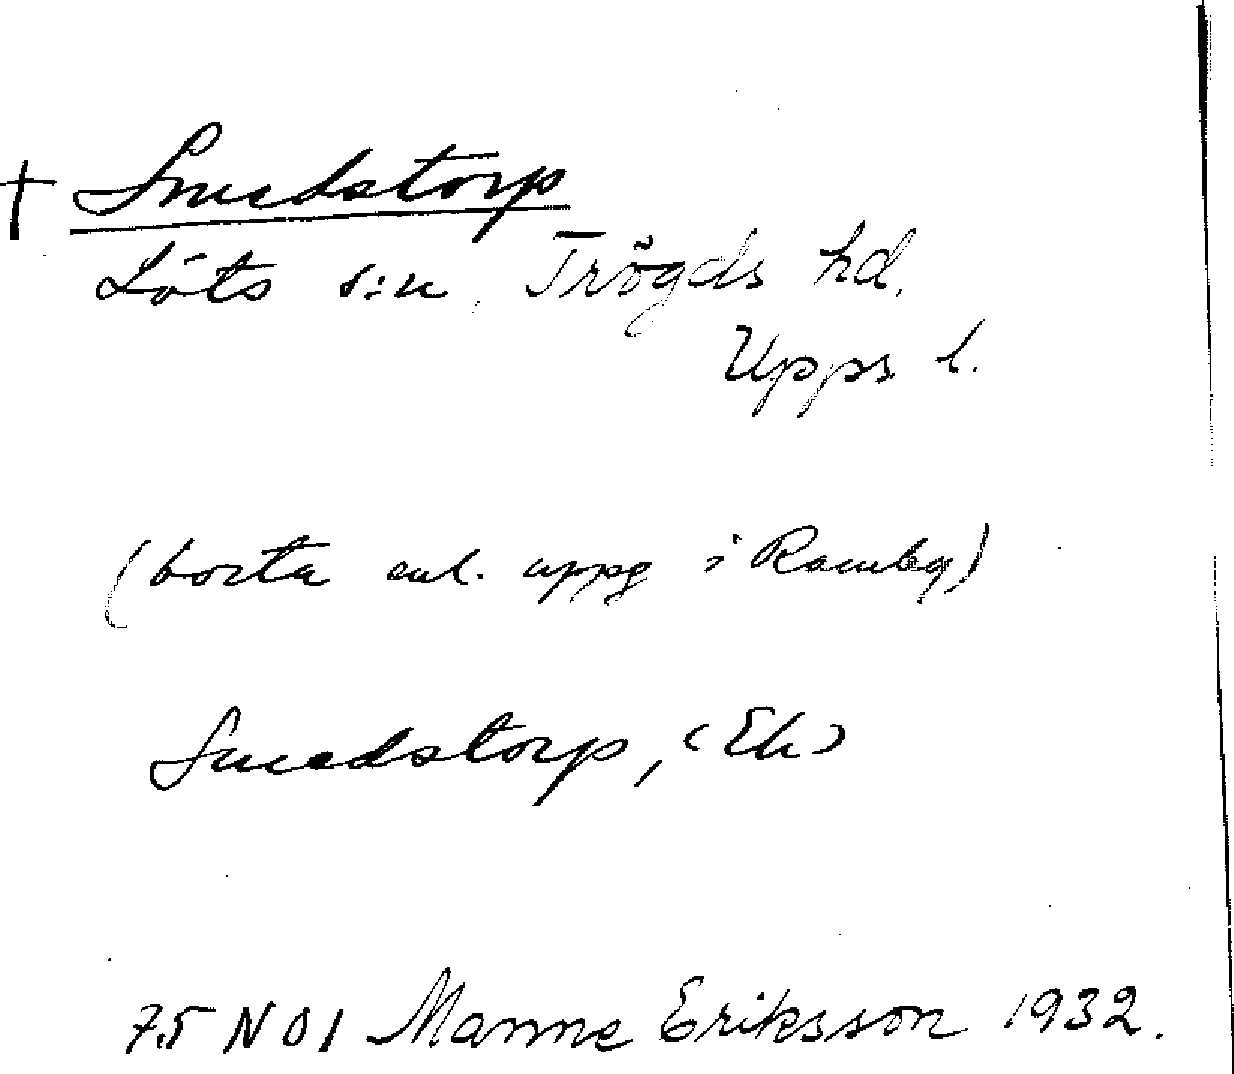 † Smedstorp
Löts s:n, Trögds hd.
Upps l.
(borta enl. uppg i Ramby)
Smedstorp, (Ek)
75 NO1 Manne Eriksson 1932.